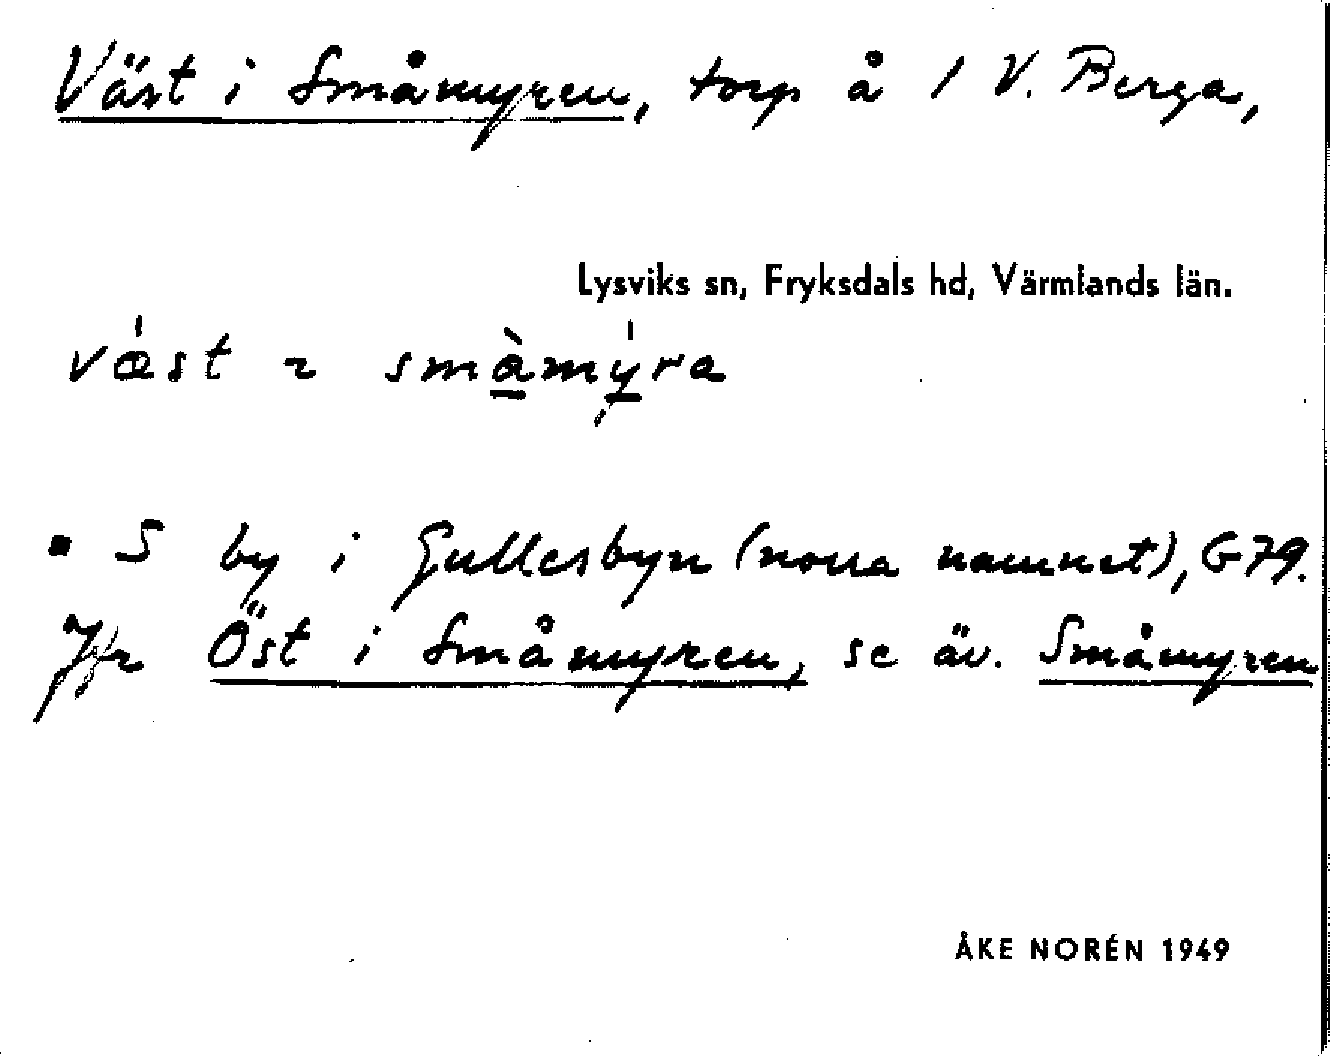 Väst i Småmyren, torp å 1 V. Berga,
Lysviks sn, Fryksdals hd, Värmlands län.
væ̍st ɿ småmy̍ra
▪ S by i Gullesbyn (norra namnet), G79.
Jfr Öst i Småmyren, se äv. Småmyren
ÅKE NORÉN 1949